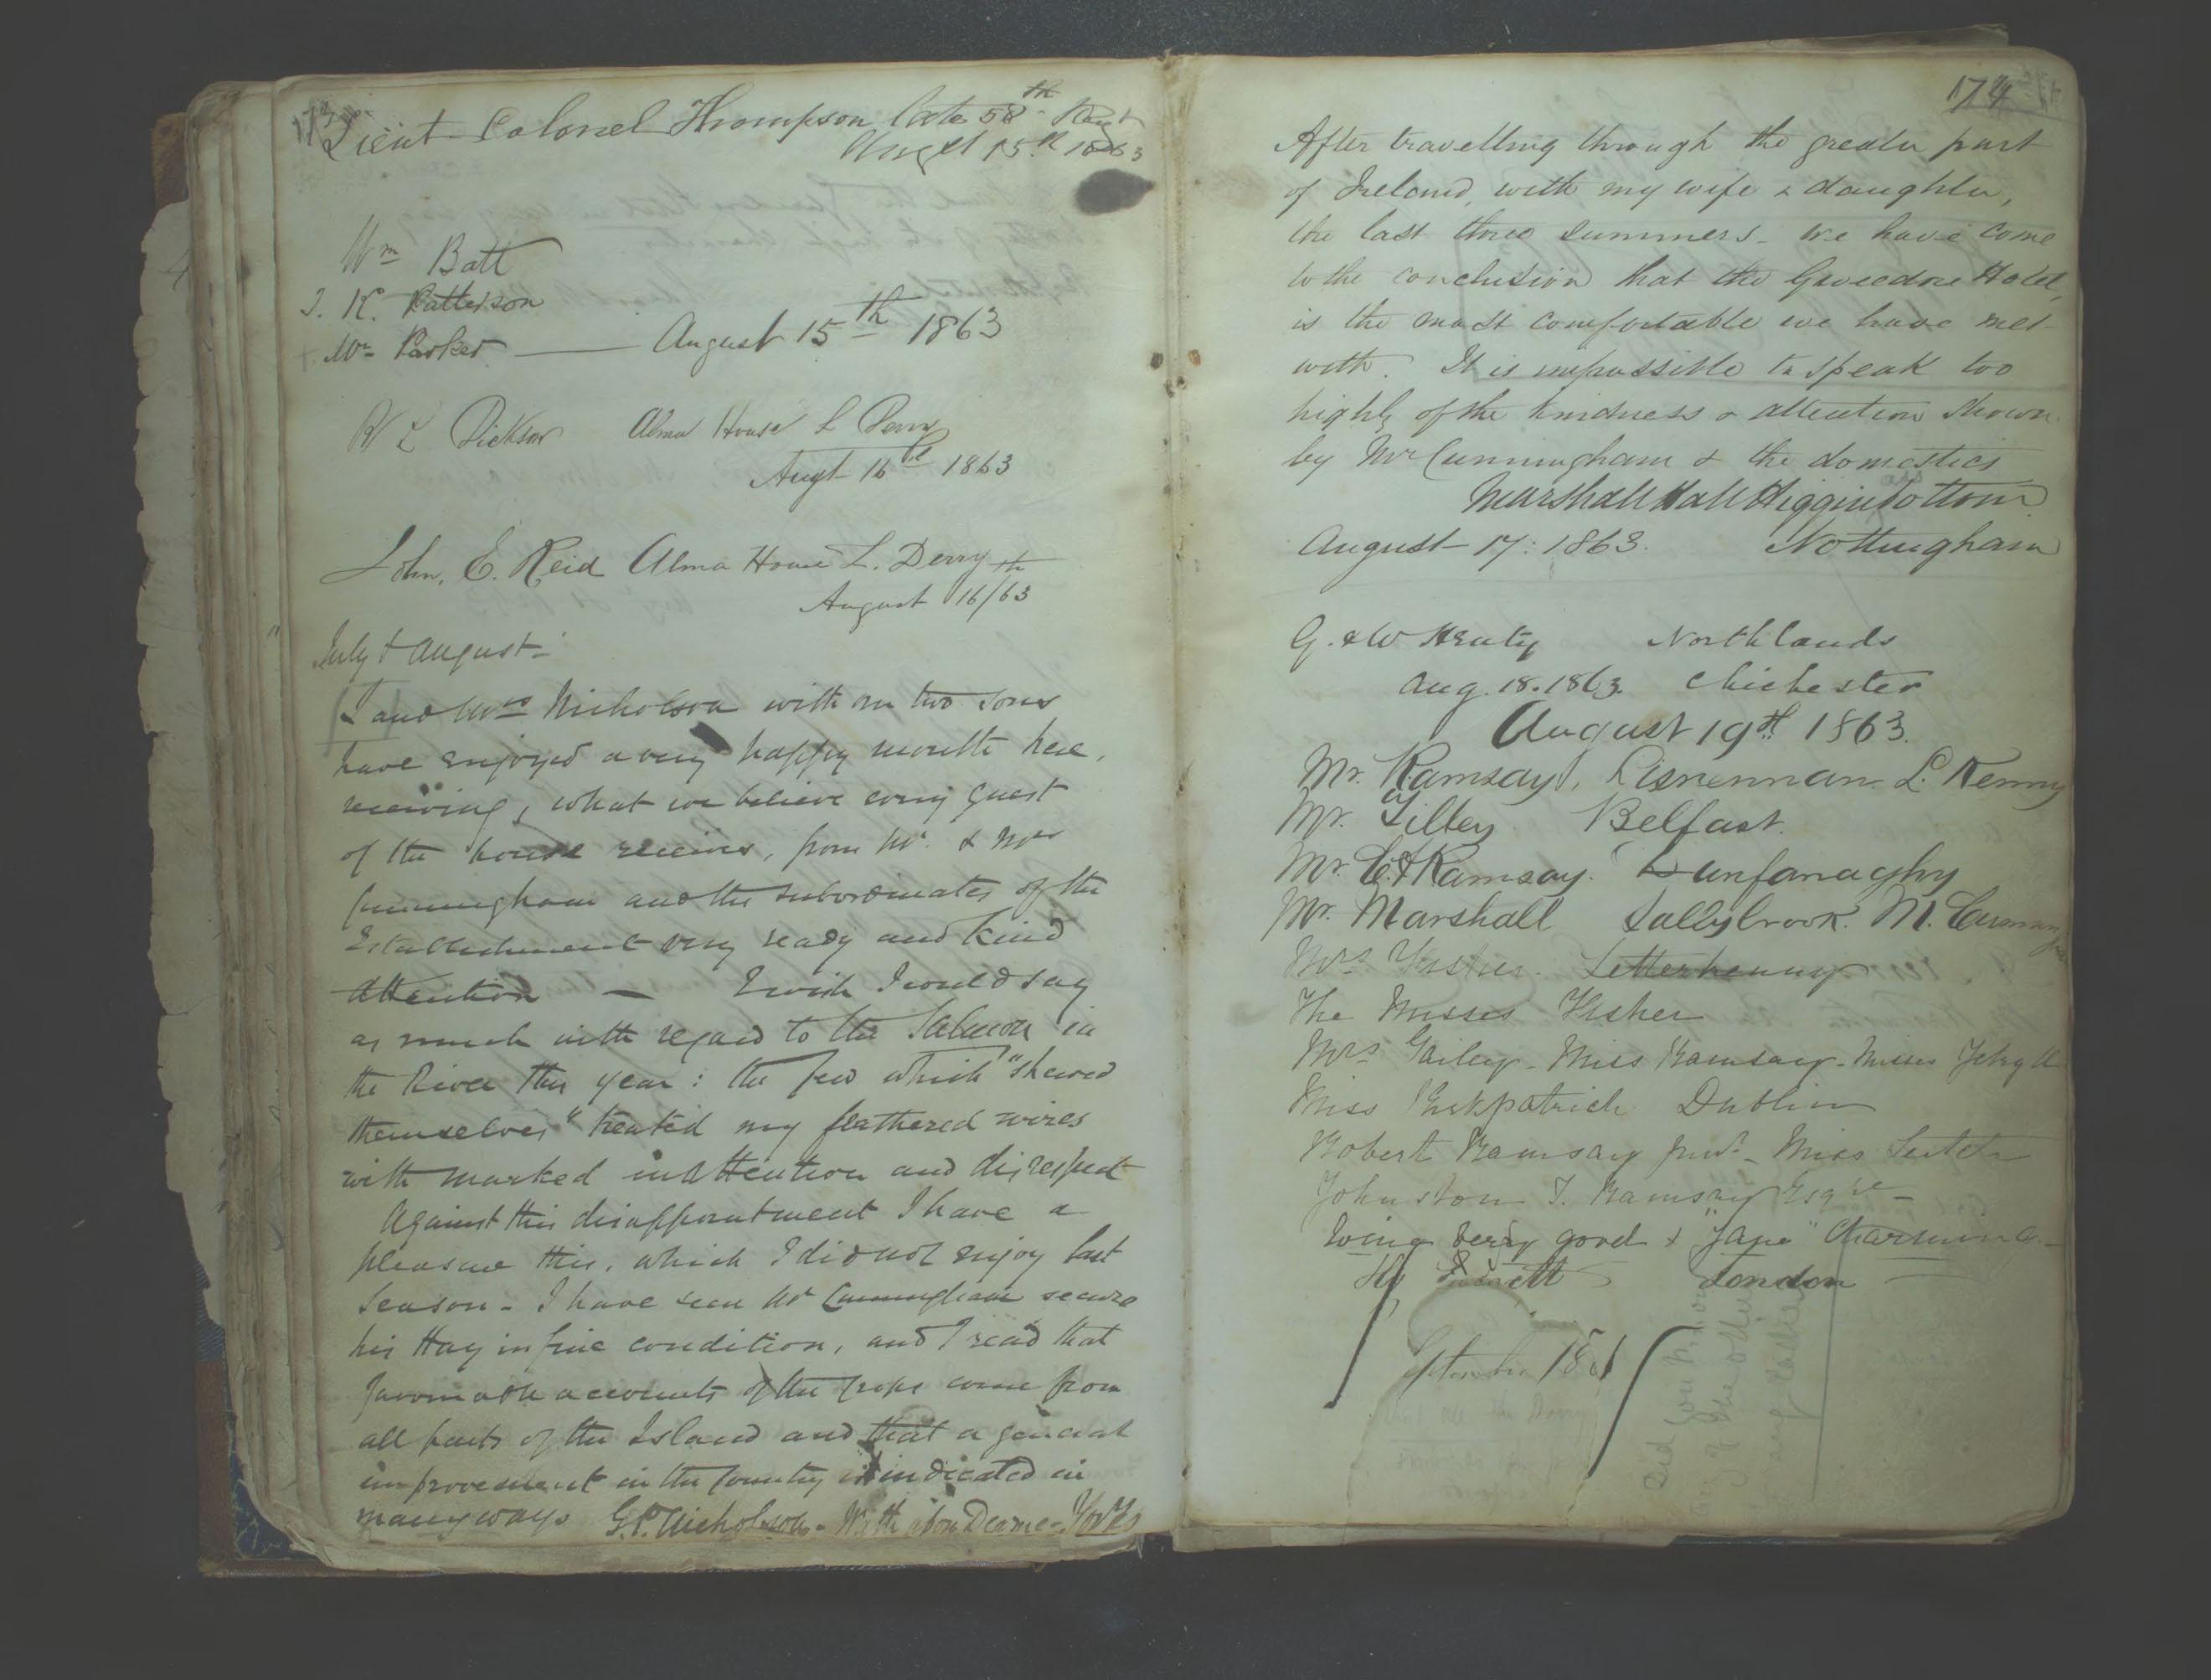 173
Lieut. Colonel Thompson late 58th Regt
Augst 15th 1863
Wm Batt
J. K. Patterson
Mr Parker — August 15th 1863
W L Dickson Alma House L Derry
Augt 16th 1863
John, E. Reid Alma House L. Derry
August 16th/63
July & August.
I and Mrs Nicholson with our two sons
have enjoyed a very happy month here,
receiving, what we believe every guest
of the house receives, from Mr. & Mrs
Cunningham and the subordinates of the
Establishment very ready and kind
attention — I wish I could say
as much with regard to the Salmon in
the River this year: the few which "shewed
themselves" treated my feathered wires
with marked inattention and disrespect
Against this disappointment I have a
pleasure this, which I did not enjoy last
Season - I have seen Mr Cunningham secure
his Hay in fine condition, and I read that
favourable accounts of the crops come from
all parts of the Island and that a general
improvement in the Country is indicated in
many ways G.P. Nicholson - Wath upon Dearne - Yorks
174
After travelling through the greater part
of Ireland, with my wife & daughter,
the last three summers - we have come
to the conclusion that the Gweedore Hotel,
is the most comfortable we have met
with. It is impossible to speak too
highly of the kindness & attention shown
by Mr Cunningham & the domestics
Marshall Hall Higginbottom
August 17: 1863. Nottingham
G. & W Henty Northlands
Aug. 18. 1863. Chichester
August 19th 1863.
Mr. Ramsay, Lisnennan L. Kenny
Mr. Tilley Belfast.
Mr. Ramsay. Dunfanaghy
Mr. Marshall Sallybrook. M. Cunningham
Mrs Fisher. Letterkenny
The Misses Fisher
Mrs Gailey - Miss Ramsay - Misses
Miss Kirkpatrick Dublin
Robert Ramsay junr. - Miss
Johnston T. Ramsay Esqre -
being very good & "Jane" Charming -
London
September 1861